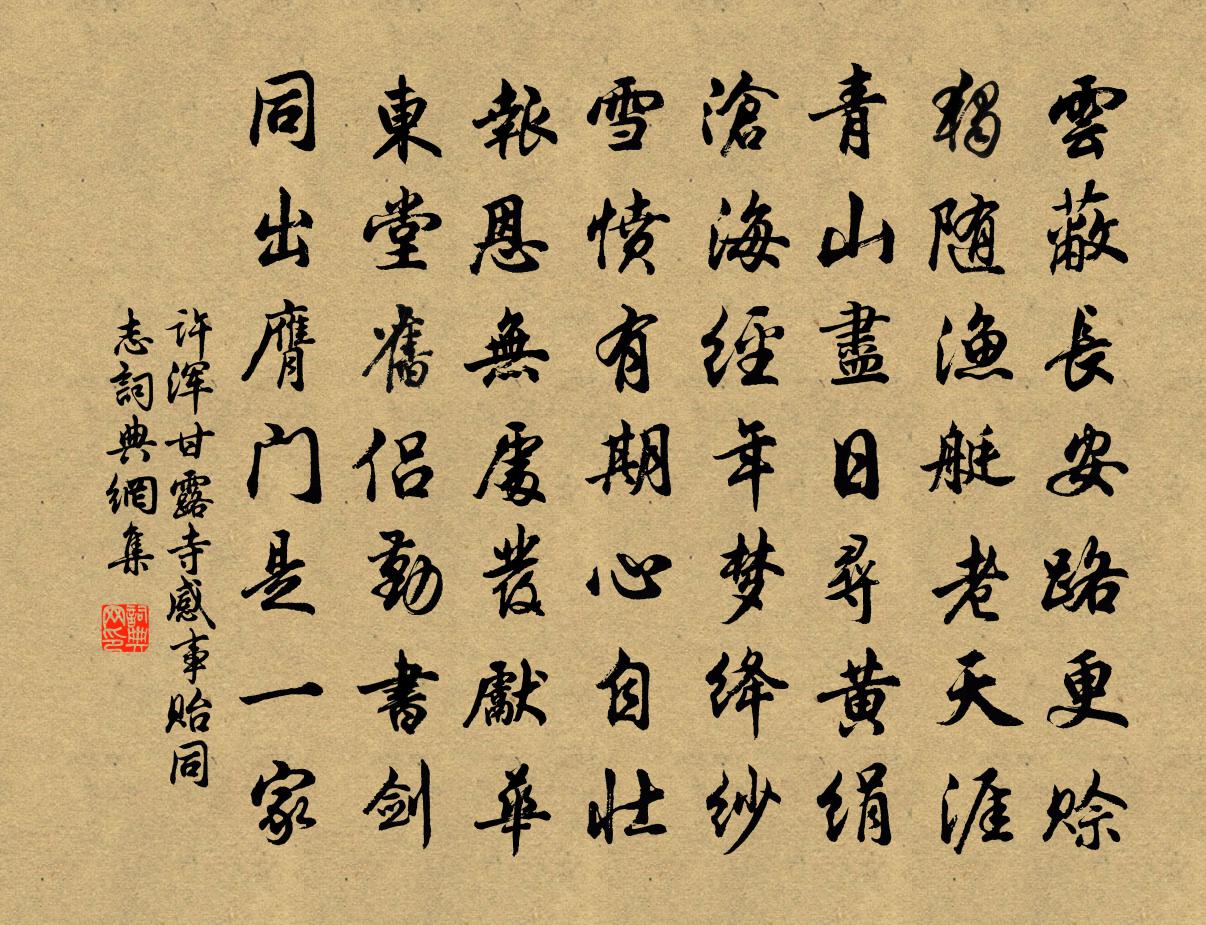 雲蔽長安路更賒
獨随漁艇老天涯
青山盡日尋黄絹
滄海經年梦绛紗
雪憤有期心自壮
報恩無處發獻華
東堂舊侣勤書剑
同出膺门是一家
许渾甘露寺感事貽同
志詞典網集
詞典网印